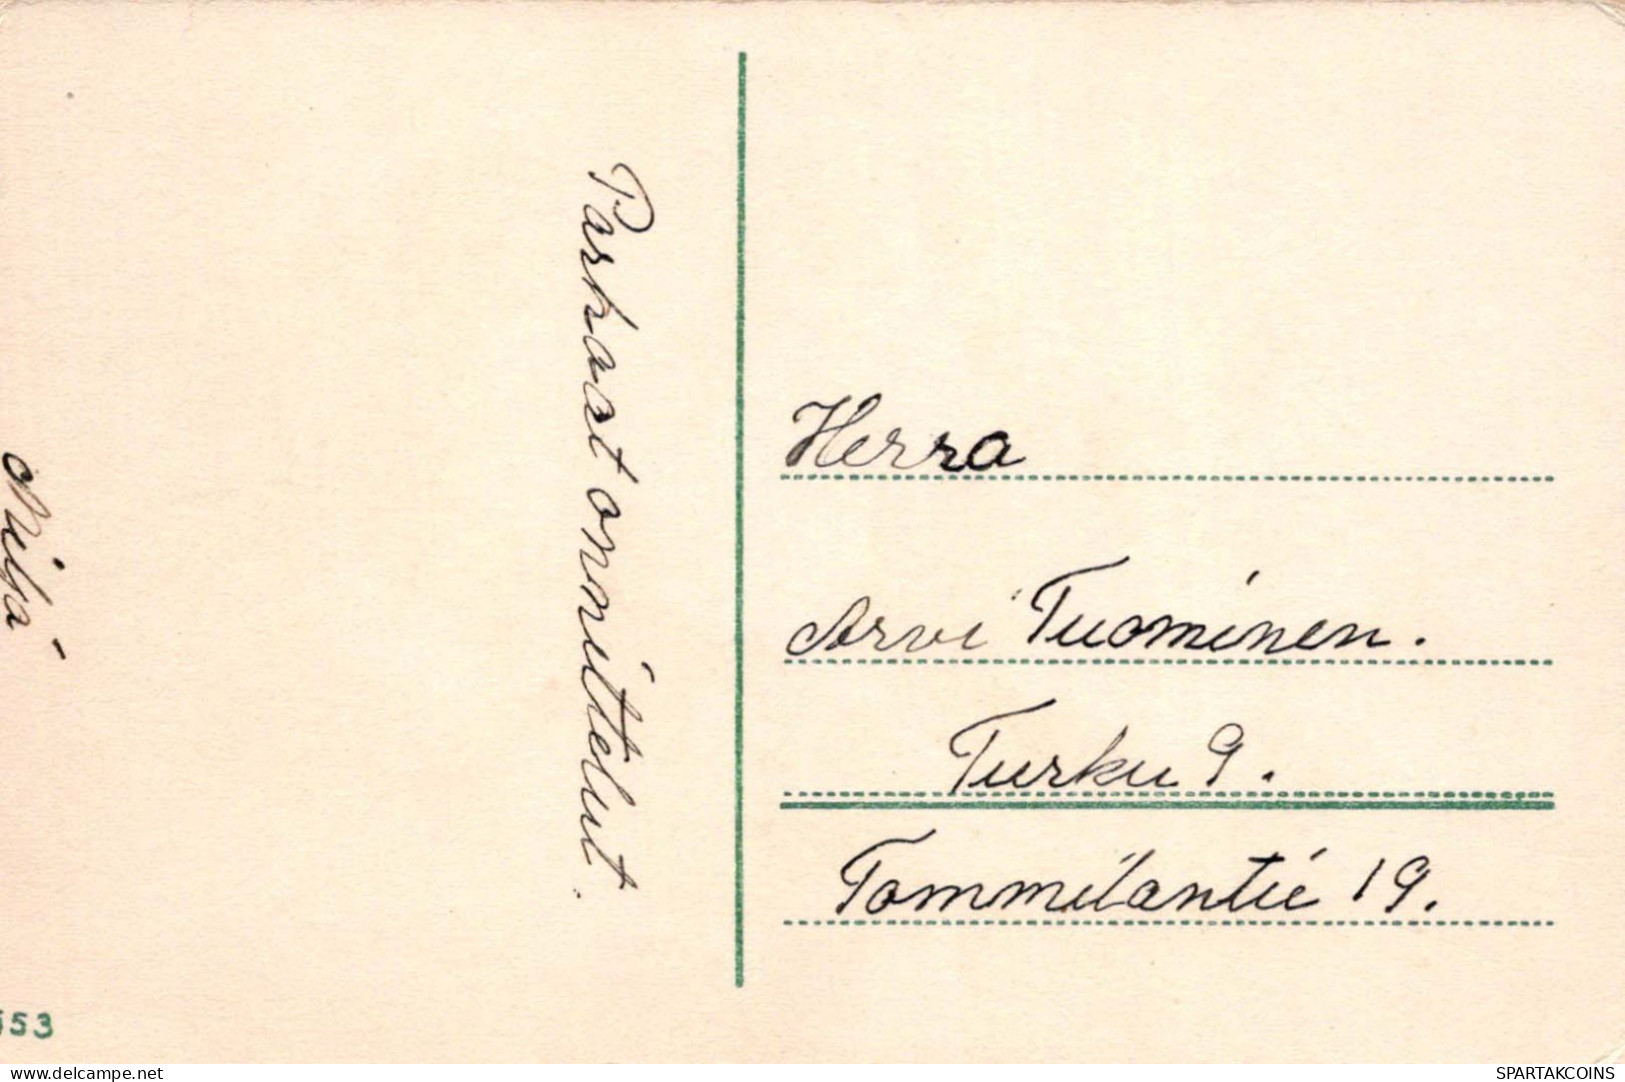 Parhaat onnittelut.
Herra
Arvi Tuominen.
Turku 9.
Tommilantie 19.
553
www.delcampe.net
SPARTAKCOINS